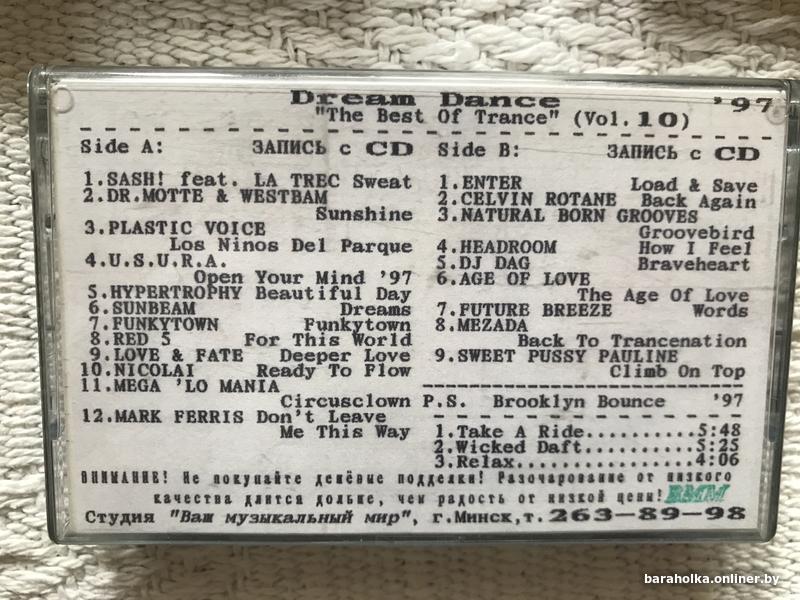 Dream Dance '97
"The Best Of Trance" (Vol.10)
Side A: ЗАПИСЬ с CD
1.SASH! feat. LA TREC Sweat
2.DR.MOTTE & WESTBAM
Sunshine
3.PLASTIC VOICE
Los Ninos Del Parque
4.U.S.U.R.A.
Open Your Mind '97
5.HYPERTROPHY Beautiful Day
6.SUNBEAM Dreams
7.FUNKYTOWN Funkytown
8.RED 5 For This World
9.LOVE & FATE Deeper Love
10.NICOLAI Ready To Flow
11.MEGA 'LO MANIA
Circusclown
12.MARK FERRIS Don't Leave
Me This Way
Side B: ЗАПИСЬ с CD
1.ENTER Load & Save
2.CELVIN ROTANE Back Again
3.NATURAL BORN GROOVES
Groovebird
4.HEADROOM How I Feel
5.DJ DAG Braveheart
6.AGE OF LOVE
The Age Of Love
7.FUTURE BREEZE Words
8.MEZADA
Back To Trancenation
9.SWEET PUSSY PAULINE
Climb On Top
P.S. Brooklyn Bounce '97
1.Take A Ride..........5:48
2.Wicked Daft..........5:25
3.Relax................4:06
ВНИМАНИЕ! Не покупайте дешёвые подделки! Разочарование от низкого
качества длится дольше, чем радость от низкой цены! ВММ
Студия "Ваш музыкальный мир", г.Минск,т.263-89-98
baraholka.onliner.by